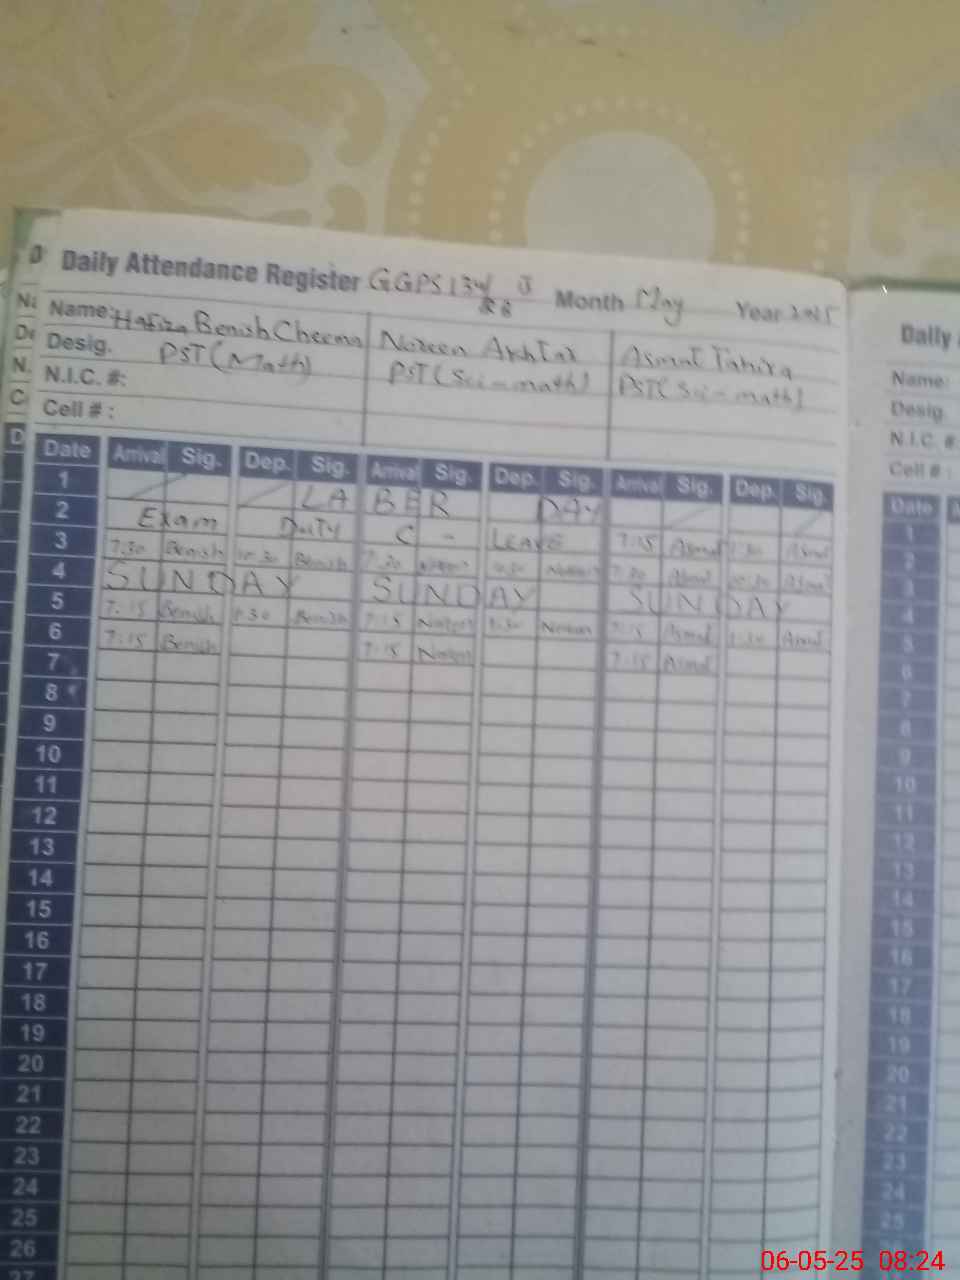 Daily Attendance Register GGPS 134 RB Month May Year 2025
Name: Hafiza Benish Cheema Noreen Akhtar Asmat Tahira
Desig. PST (Math) PST (Sci-math) PST (Sci-math)
N.I.C. #:
Cell # :
Date Arrival Sig. Dep. Sig. Arrival Sig. Dep. Sig. Arrival Sig. Dep. Sig.
1 LABER DAY
2 Exam DUTY C - LEAVE 7:15 Asmat Asmat
3 7:30 Benish 10:30 Benish 7:30
4 SUNDAY SUNDAY SUNDAY
5 7:15 Benish 1:30 Benish 7:15 Noreen 1:30 Noreen 7:15 Asmat 1:30 Asmat
6 7:15 Benish 7:15 Noreen 7:15 Asmat
7
8
9
10
11
12
13
14
15
16
17
18
19
20
21
22
23
24
25
26
27
Daily
Name:
Desig.
N.I.C. #
Cell # :
Date
1
2
3
4
5
6
7
8
9
10
11
12
13
14
15
16
17
18
19
20
21
22
23
24
25
06-05-25 08:24